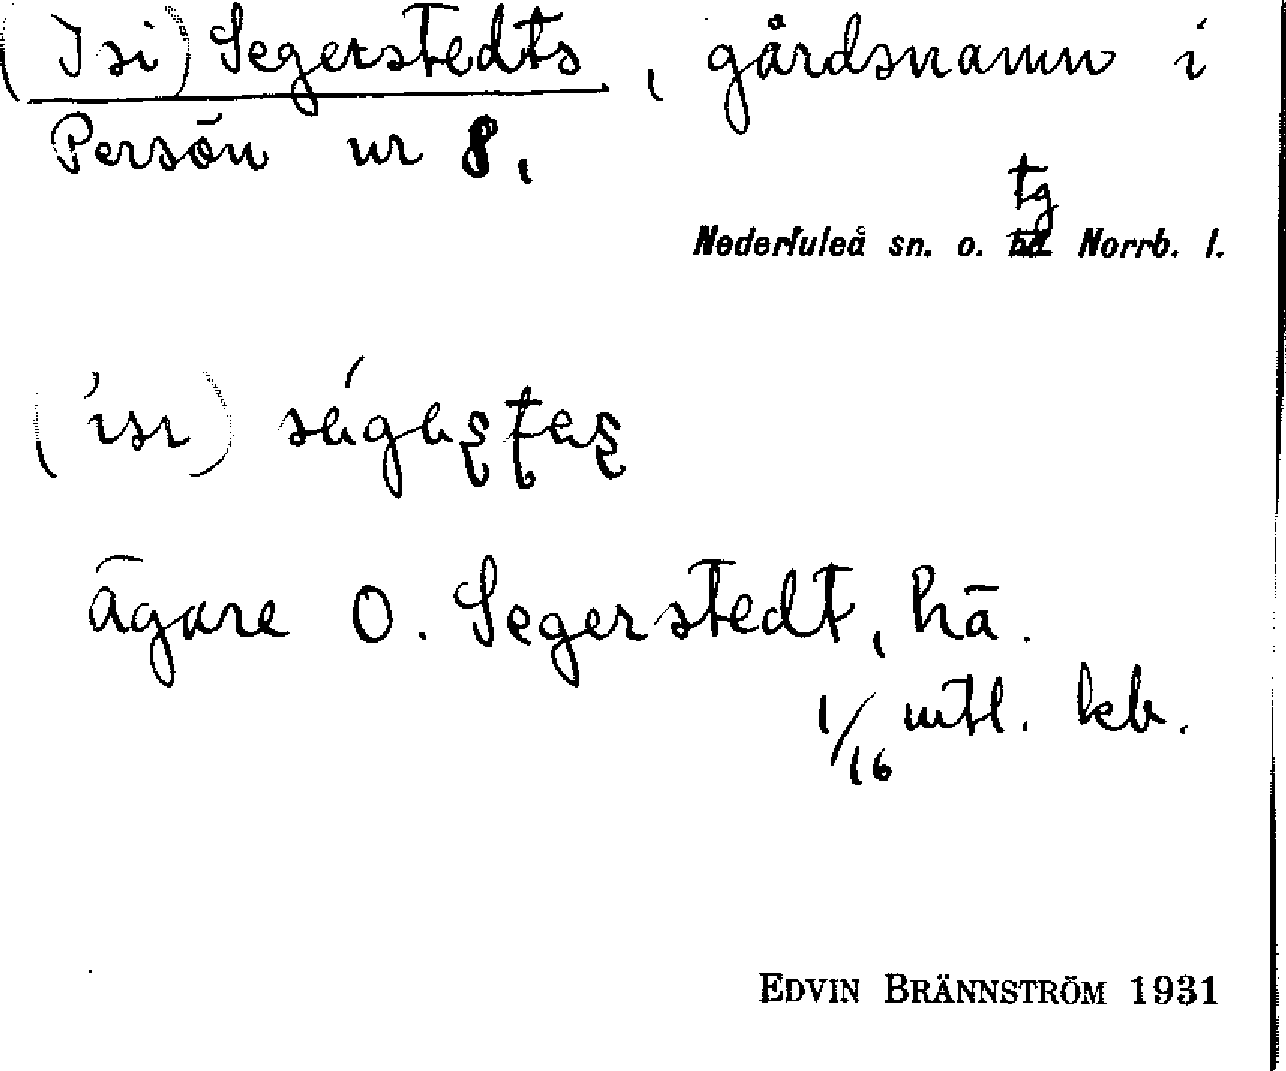 (Isi) Segerstedts, gårdsnamn i
Persön nr 8,
tg
Nederluleå sn. o. Norrb. l.
ägare O. Segerstedt, hä.
1/16 mtl. kb.
EDVIN BRÄNNSTRÖM 1931